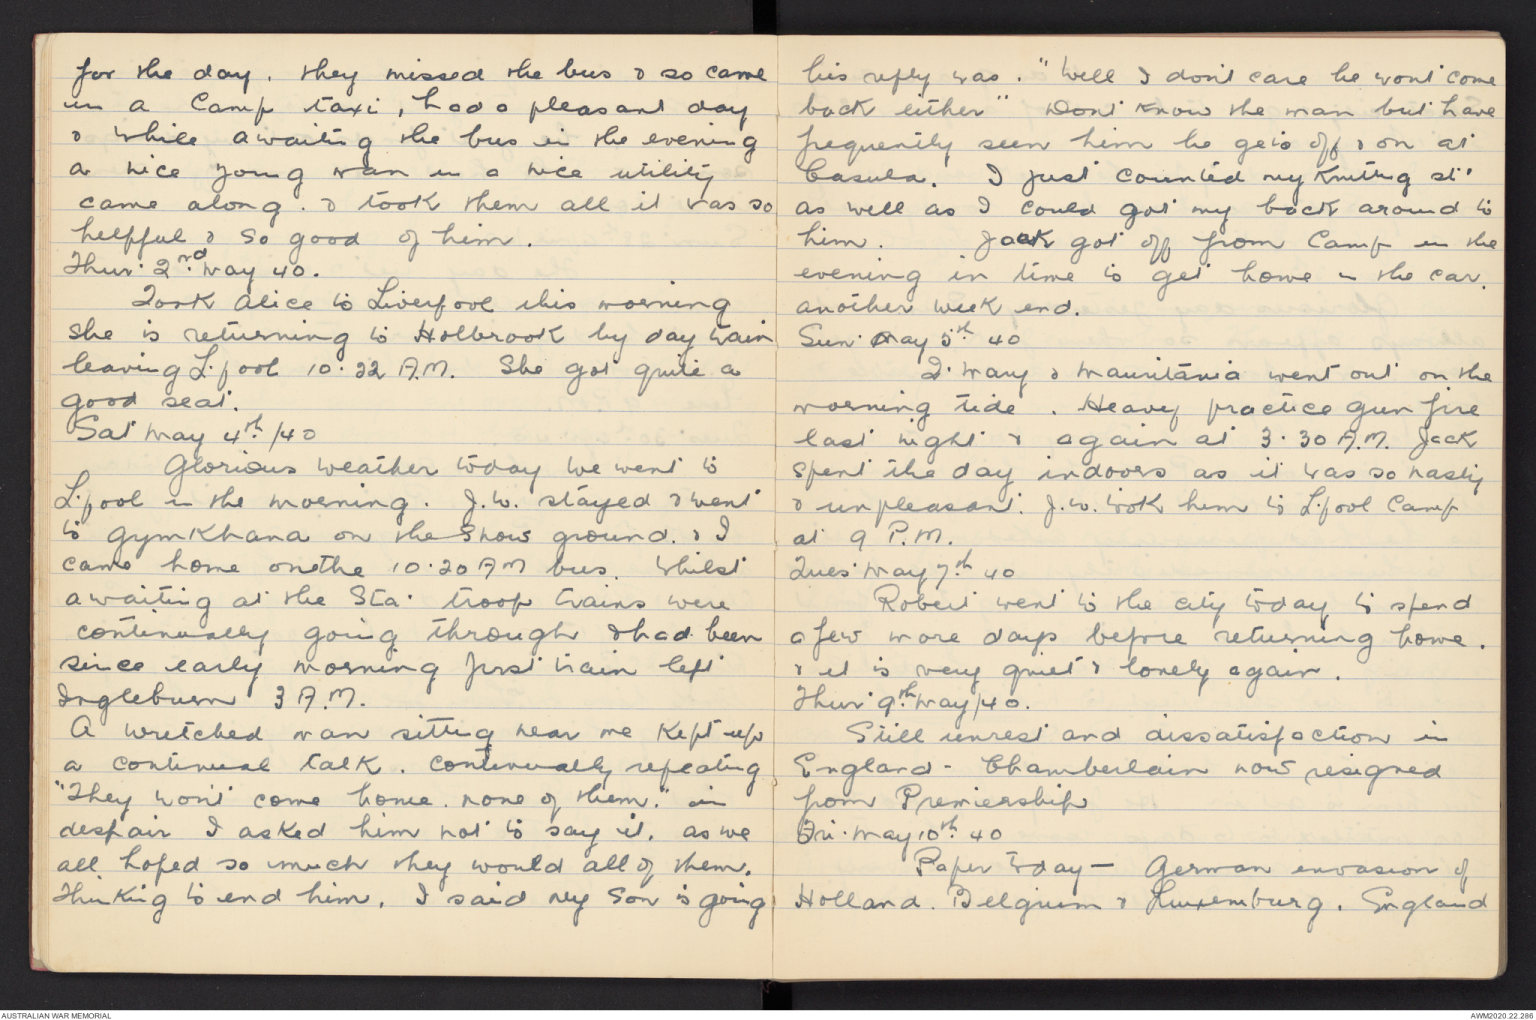 for the day. they missed the bus & so came
in a Camp taxi, had a pleasant day
& while awaiting the bus in the evening
a nice young man in a nice utility
came along. & took them all it was so
helpful & so good of him.
Thur. 2nd. May 40.
Took Alice to Liverpool this morning
she is returning to Holbrook by day train
leaving L.pool 10.22 A.M. She got quite a
good seat.
Sat May 4th./40
Glorious weather today we went to
L.pool in the morning. J.W. stayed & went
to Gymkhana on the Show ground. & I
came home on the 10.20 AM bus. Whilst
awaiting at the Sta. troop trains were
continually going through & had been
since early morning first train left
Ingleburn 3 A.M.
A wretched man sitting near me kept up
a continual talk. Continually repeating
"They won't come home. none of them." in
despair I asked him not to say it. as we
all hoped so much they would all of them.
Thinking to end him. I said my Son is going
his reply was. "Well I don't care he wont come
back either" Dont know the man but have
frequently seen him he gets off & on at
Casula. I just counted my knitting st.
as well as I could got my back around to
him. Jack got off from Camp in the
evening in time to get home in the car.
another week end.
Sun. May 5th 40
Q. Mary & Mauritania went out on the
morning tide. Heavy practice gun fire
last night & again at 3.30 A.M. Jack
spent the day indoors as it was so nasty
& unpleasant. J.W. took him to L.pool Camp
at 9 P.M.
Tues. May 7th. 40
Robert went to the city today to spend
a few more days before returning home.
& it is very quiet & lonely again.
Thur. 9th. May/40.
Still unrest and dissatisfaction in
England - Chamberlain now resigned
from Premiership
Fri. May 10th. 40
Paper today — German envasion of
Holland. Belgium & Luxemburg. England
AUSTRALIAN WAR MEMORIAL
AWM2020.22.286